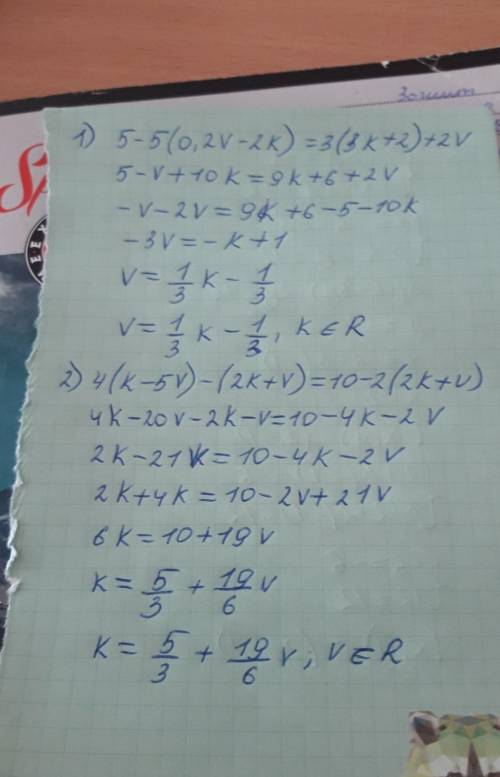 Зачит
1) 5-5(0,2v-2k)=3(3k+2)+2v
5-v+10k=9k+6+2v
-v-2v=9k+6-5-10k
-3v=-k+1
v=1/3 k - 1/3
v=1/3 k - 1/3, k∈R
2) 4(k-5v)-(2k+v)=10-2(2k+v)
4k-20v-2k-v=10-4k-2v
2k-21v=10-4k-2v
2k+4k=10-2v+21v
6k=10+19v
k=5/3 + 19/6 v
k=5/3 + 19/6 v; v∈R